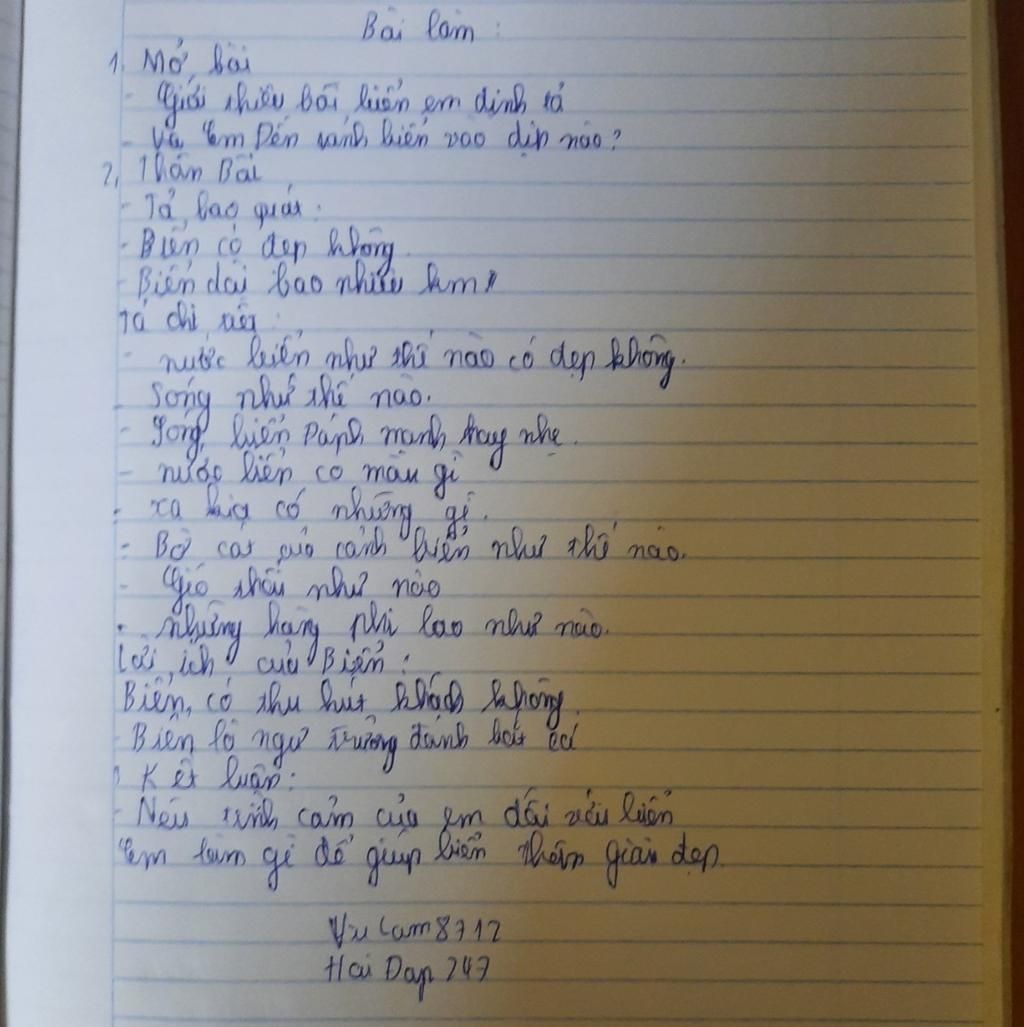 Bài làm :
1. Mở bài
- Giới thiệu bãi biển em định tả
- Và Em Đến cảnh biển vào dịp nào?
2, Thân Bài
- Tả bao quát :
- Biển có đẹp không.
- Biển dài bao nhiêu km
Tả chi tiết :
- nước biển như thế nào có đẹp không.
- Sóng như thế nào.
- Sóng biển Đánh mạnh hay nhẹ.
- nước biển có màu gì
- xa kia có những gì.
- Bờ cát của cảnh biển như thế nào.
- Gió thổi như nào
- những hàng phi lao như nào.
Lợi ích của Biển :
Biển có thu hút khách không.
- Biển là ngư trường đánh bắt cá
Kết luận :
- Nêu tình cảm của em đối với biển
Em làm gì để giúp biển thêm giàu đẹp.
Vu Lam8712
Hoi Dap 247